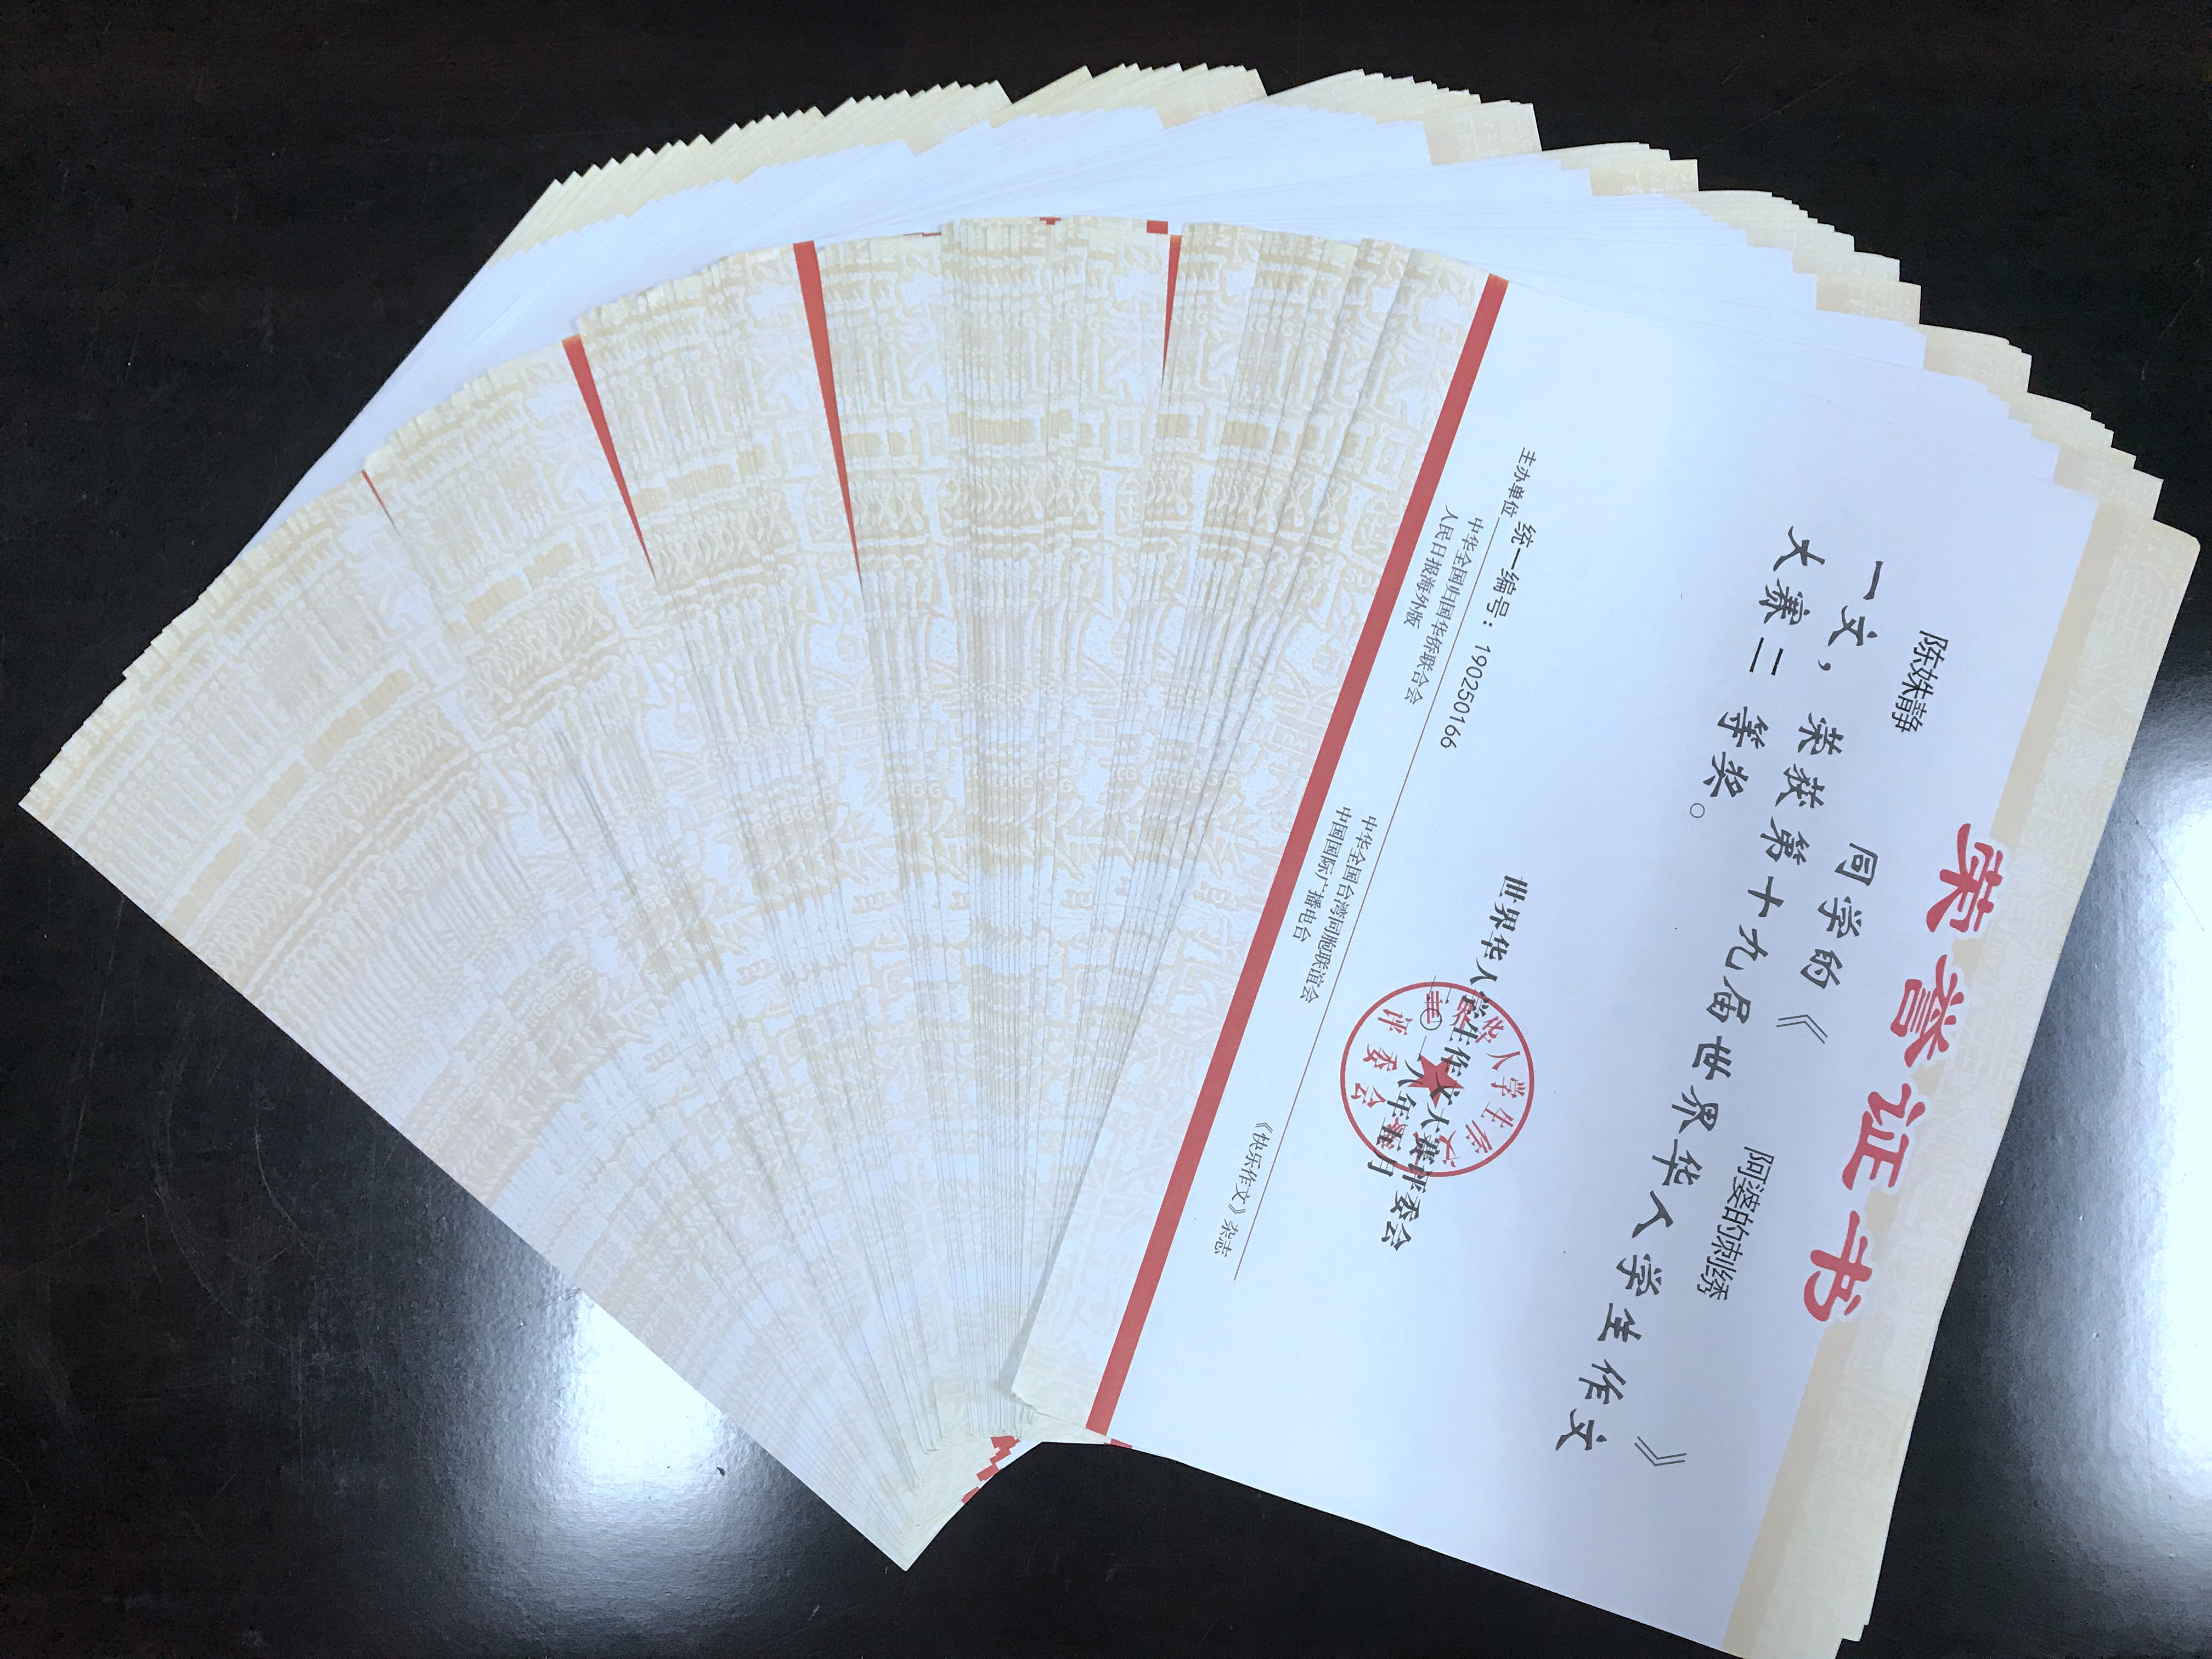 荣誉证书
陈姝静 同学的《 阿婆的刺绣 》
一文，荣获第十九届世界华人学生作文
大赛二等奖。
世界华人学生作文大赛评委会
二〇一八年五月
统一编号：190250166
主办单位 中华全国归国华侨联合会 中华全国台湾同胞联谊会 《快乐作文》杂志
人民日报海外版 中国国际广播电台